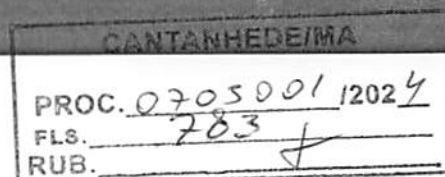 CANTANHEDE/MA
PROC. 0705001 /2024
FLS. 783
RUB.